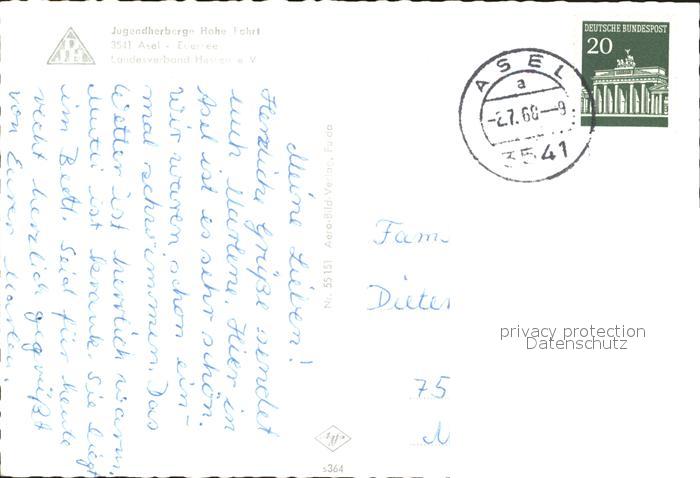 Jugendherberge Hohe Fahrt
3541 Asel - Edersee
Landesverband Hessen e. V.
Meine Lieben!
Herzliche Grüße sendet
euch Marlene. Hier in
Asel ist es sehr schön.
Wir waren schon ein-
mal schwimmen. Das
Wetter ist herrlich warm.
Mutti ist krank. Sie liegt
im Bett. Seid für heute
recht herzlich gegrüßt
von Eurer Marlen.
Nr. 55151 Aero-Bild-Verlag, Fulda
s364
DEUTSCHE BUNDESPOST
20
ASEL
a
-2.7.68--9
3541
Fam.
Dieter
75
N
privacy protection
Datenschutz